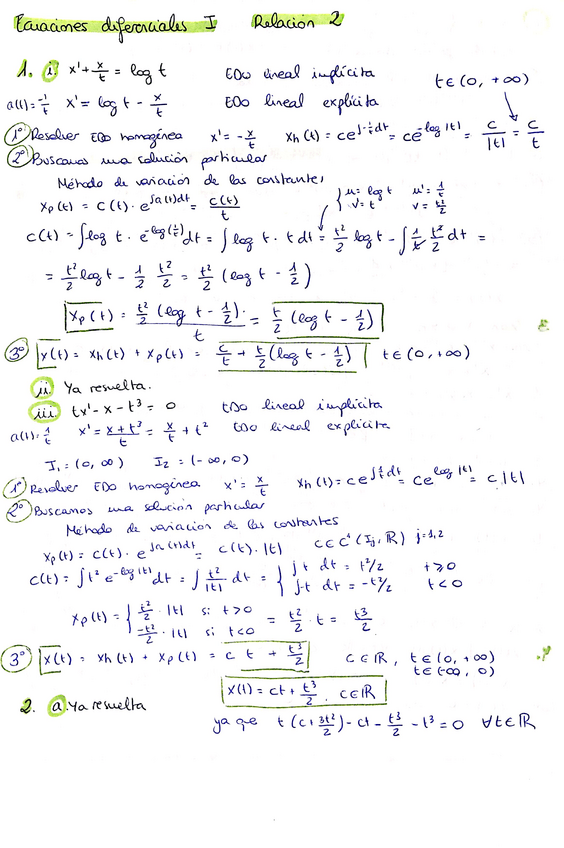 Ecuaciones diferenciales I Relación 2
1. i) x' + x/t = log t EDO lineal implícita t ∈ (0, +∞)
a(t) = -1/t x' = log t - x/t EDO lineal explícita
1º Resolver EDO homogénea x' = -x/t xh(t) = ce^∫-1/t dt = ce^-log|t| = c/|t| = c/t
2º Buscamos una solución particular
Método de variación de las constantes
xp(t) = c(t) · e^∫a(t)dt = c(t)/t { u = log t u' = 1/t
v' = t v = t²/2
c(t) = ∫log t · e^-log(1/t) dt = ∫ log t · t dt = t²/2 log t - ∫ 1/t t²/2 dt =
= t²/2 log t - 1/2 t²/2 = t²/2 (log t - 1/2)
xp(t) = t²/2 (log t - 1/2) · / t = t/2 (log t - 1/2)
3º x(t) = xh(t) + xp(t) = c/t + t/2 (log t - 1/2) t ∈ (0, +∞)
ii) Ya resuelta.
iii) tx' - x - t³ = 0 EDO lineal implícita
a(t) = 1/t x' = x + t³/t = x/t + t² EDO lineal explícita
I₁ = (0, ∞) I₂ = (-∞, 0)
1º Resolver EDO homogénea x' = x/t xh(t) = ce^∫1/t dt = ce^log|t| = c|t|
2º Buscamos una solución particular
Método de variación de las constantes
xp(t) = c(t) · e^∫a(t)dt = c(t) · |t| c ∈ C¹(Ij, ℝ) j = 1,2
c(t) = ∫t² e^-log|t| dt = ∫ t²/|t| dt = { ∫t dt = t²/2 t > 0
∫-t dt = -t²/2 t < 0
xp(t) = { t²/2 · |t| si t > 0 = t²/2 · t = t³/2
-t²/2 · |t| si t < 0
3º x(t) = xh(t) + xp(t) = c t + t³/2 c ∈ ℝ, t ∈ (0, +∞)
t ∈ (-∞, 0)
x(t) = ct + t³/2, c ∈ ℝ
2. a. Ya resuelta
ya que t(c + 3t²/2) - ct - t³/2 - t³ = 0 ∀t ∈ ℝ